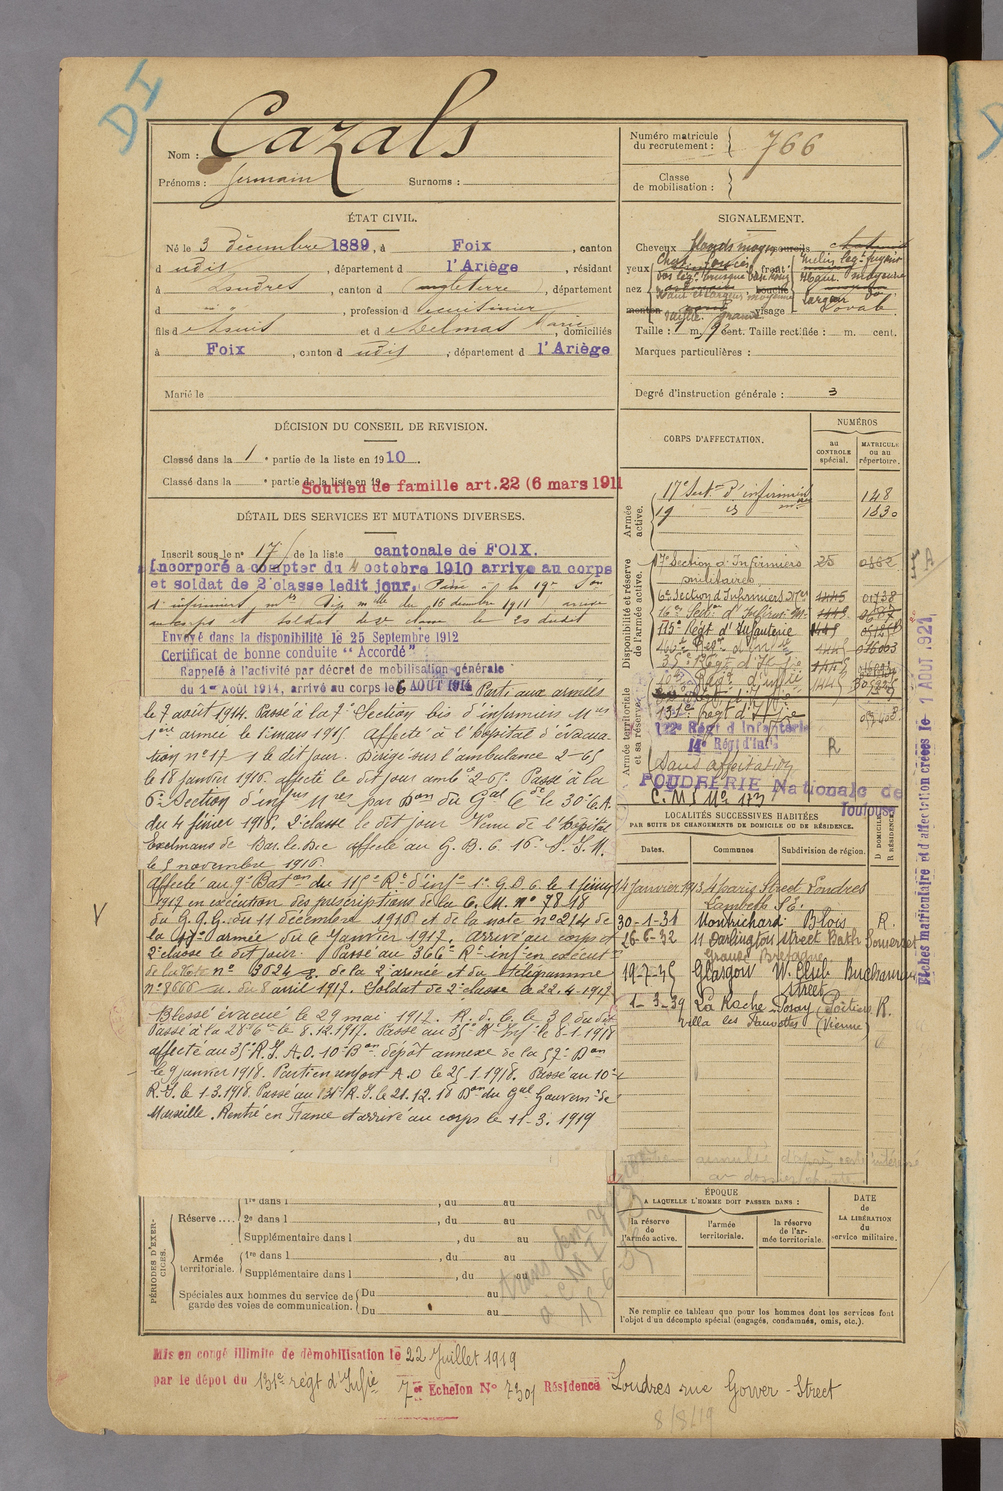 DI
Nom : Cazals
Prénoms : Germain Surnoms :
Numéro matricule du recrutement : 766
Classe de mobilisation :
ÉTAT CIVIL.
Né le 3 décembre 1889, à Foix, canton
d udit, département d l'Ariège, résidant
à Londres, canton d Angleterre, département
d , profession d cuisinier
fils d et d Delmas Marie, domiciliés
à Foix, canton d udit, département d l'Ariège
Marié le
SIGNALEMENT.
Cheveux blonds moyen
yeux front
nez
visage ovale
Taille : 1 m. cent. Taille rectifiée : m. cent.
Marques particulières :
Degré d'instruction générale : 3
DÉCISION DU CONSEIL DE REVISION.
Classé dans la 1 e partie de la liste en 1910.
Classé dans la e partie de la liste en 19
Soutien de famille art. 22 (6 mars 1911
DÉTAIL DES SERVICES ET MUTATIONS DIVERSES.
Inscrit sous le n° 17 de la liste cantonale de FOIX.
Incorporé a compter du 4 octobre 1910 arrive au corps
et soldat de 2e classe ledit jour. Passé à la 19e Son
d'infirmiers mres du 15 décembre 1911 arrivé
au corps et soldat de 2e classe le 25 dudit
Envoyé dans la disponibilité le 25 Septembre 1912
Certificat de bonne conduite "Accordé"
Rappelé à l'activité par décret de mobilisation générale
du 1er Août 1914, arrivé au corps le 6 AOUT 1914 Parti aux armées
le 7 août 1914. Passé à la 7e Section bis d'infirmiers Mres
1ère armée le 1er mars 1915 Affecté à l'Hôpital d'évacua-
tion n° 17 1 le dit jour. Dirigé sur l'ambulance 2-65
le 18 janvier 1916 affecté le dit jour ambce 2-65. Passé à la
6e Section d'infirs Mres par Don du Gal Cdt le 30e C.A.
du 4 février 1916. 2e classe le dit jour Venu de l'Hôpital
Exelmans de Bar-le-Duc affecté au G.B.C. 16e S.I.M.
le 5 novembre 1916.
Affecté au 9e Baton du 115e Rt d'infie 1er G.B.C. le 1 janvier
1917 en exécution des prescriptions de la C.M. n° 78-18
du G.Q.G. du 11 décembre 1916 et de la note n° 214 de
la armée du 6 Janvier 1917. Arrivé au corps et
2e classe le dit jour. Passé au 366e Rt inf en exécut
de la Note n° 3024 de la 2e armée et du télégramme
n° 8666 du 8 avril 1917. Soldat de 2e classe le 22-4-1917
Blessé évacué le 29 mai 1917.
Passé à la 28e Cie le 8.12.1917. Passé au 35e Rt Inf le 8-1-1918
affecté au 35e R.I. A.O. 10e Bon dépôt annexe de la 57e Don
le 9 janvier 1918. Parti en renfort A.O le 25-1-1918. Passé au 10e
R.I. le 1.3.1918. Passé au 131e R.I. le 21.12.18 Don du Gal Gouvern de
Marseille. Rentré en France et arrivé au corps le 11-3-1919
V
CORPS D'AFFECTATION.
NUMÉROS
au CONTROLE spécial.
MATRICULE ou au répertoire.
Armée active.
17e Sect. d'infirmiers 148
19 do 1830
Disponibilité et réserve de l'armée active.
17e Section d'Infirmiers militaires 25
6e Section d'Infirmiers Mres 01738
16e Section d'Infirm. M.
115e Régt d'Infanterie
366e Régt d'Infie
35e Régt d'Infie
10e Régt d'Infie
Armée territoriale et sa réserve.
131e Régt d'Infie
122e Régt d'Infanterie
14e Régt d'Infie R
Sans affectation
POUDRERIE Nationale de Toulouse
C.M.I. No 173
Fiches matriculaire et d'affectation créées le 1 AOUT 1921
LOCALITÉS SUCCESSIVES HABITÉES
PAR SUITE DE CHANGEMENTS DE DOMICILE OU DE RÉSIDENCE.
Dates. Communes Subdivision de région. D DOMICILE R RÉSIDENCE.
14 Janvier 1913 4 Paris Street Londres
Lambeth S.E.
30-1-31 Montrichard Blois R.
26-6-32 11 Darlington Street Bath Somerset
Grande Bretagne
19-7-35 Glasgow W. Club Buchanan
street
1-3-39 La Roche-Posay Poitiers R.
Villa les Fauvettes (Vienne)
PÉRIODES D'EXERCICES.
Réserve ....
1re dans l , du au
2e dans l , du au
Supplémentaire dans l , du au
Armée territoriale.
1re dans l , du au
Supplémentaire dans l , du au
Spéciales aux hommes du service de garde des voies de communication.
Du au
Du au
ÉPOQUE
A LAQUELLE L'HOMME DOIT PASSER DANS :
la réserve de l'armée active.
l'armée territoriale.
la réserve de l'armée territoriale.
DATE de LA LIBÉRATION du service militaire.
Ne remplir ce tableau que pour les hommes dont les services font
l'objet d'un décompte spécial (engagés, condamnés, omis, etc.).
Mis en congé illimité de démobilisation le 22 Juillet 1919
par le dépôt du 131e régt d'Infie 7e Echelon N° 7301 Résidence Londres rue Gower-Street
8/8/19